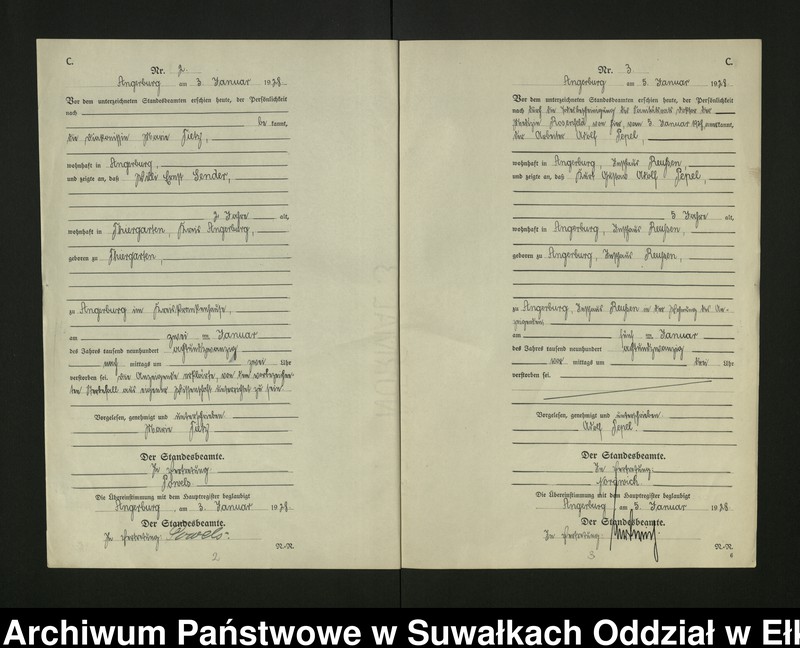 C.
Nr. 2
Angerburg am 3. Januar 1928
Vor dem unterzeichneten Standesbeamten erschien heute, der Persönlichkeit
nach
be kannt,
die Diakonissin Marie
wohnhaft in Angerburg,
und zeigte an, daß Willi Ernst Bender,
2 Jahre alt,
wohnhaft in Thiergarten, Kreis Angerburg,
geboren zu Thiergarten,
zu Angerburg im Kreiskrankenhause,
am zwei ten Januar
des Jahres tausend neunhundert achtundzwanzig
nach mittags um zwei Uhr
verstorben sei. Die Anzeigende erklärte, von dem vorbezeichne-
ten Sterbefall aus eigener Wissenschaft unterrichtet zu sein
Vorgelesen, genehmigt und unterschrieben
Marie
Der Standesbeamte.
In Vertretung
Die Übereinstimmung mit dem Hauptregister beglaubigt
Angerburg, am 3. Januar 1928
Der Standesbeamte.
In Vertretung:
N-N.
2
C.
Nr. 3
Angerburg am 5. Januar 1928
Vor dem unterzeichneten Standesbeamten erschien heute, der Persönlichkeit
nach durch die des Sanitätsrats Doktor der
Medizin Rosenfeld, von hier, vom 5. Januar 1928, anerkannt,
der Arbeiter Adolf
wohnhaft in Angerburg, Insthaus Reußen,
und zeigte an, daß Kurt Gustav Adolf
5 Jahre alt,
wohnhaft in Angerburg, Insthaus Reußen,
geboren zu Angerburg, Insthaus Reußen,
zu Angerburg, Insthaus Reußen in der Wohnung des An-
zeigenden
am fünf ten Januar
des Jahres tausend neunhundert achtundzwanzig
vor mittags um Uhr
verstorben sei.
Vorgelesen, genehmigt und unterschrieben
Adolf
Der Standesbeamte.
In Vertretung
Die Übereinstimmung mit dem Hauptregister beglaubigt
Angerburg, am 5. Januar 1928
Der Standesbeamte.
In Vertretung:
N-N.
6
3
Archiwum Państwowe w Suwałkach Oddział w Ełk